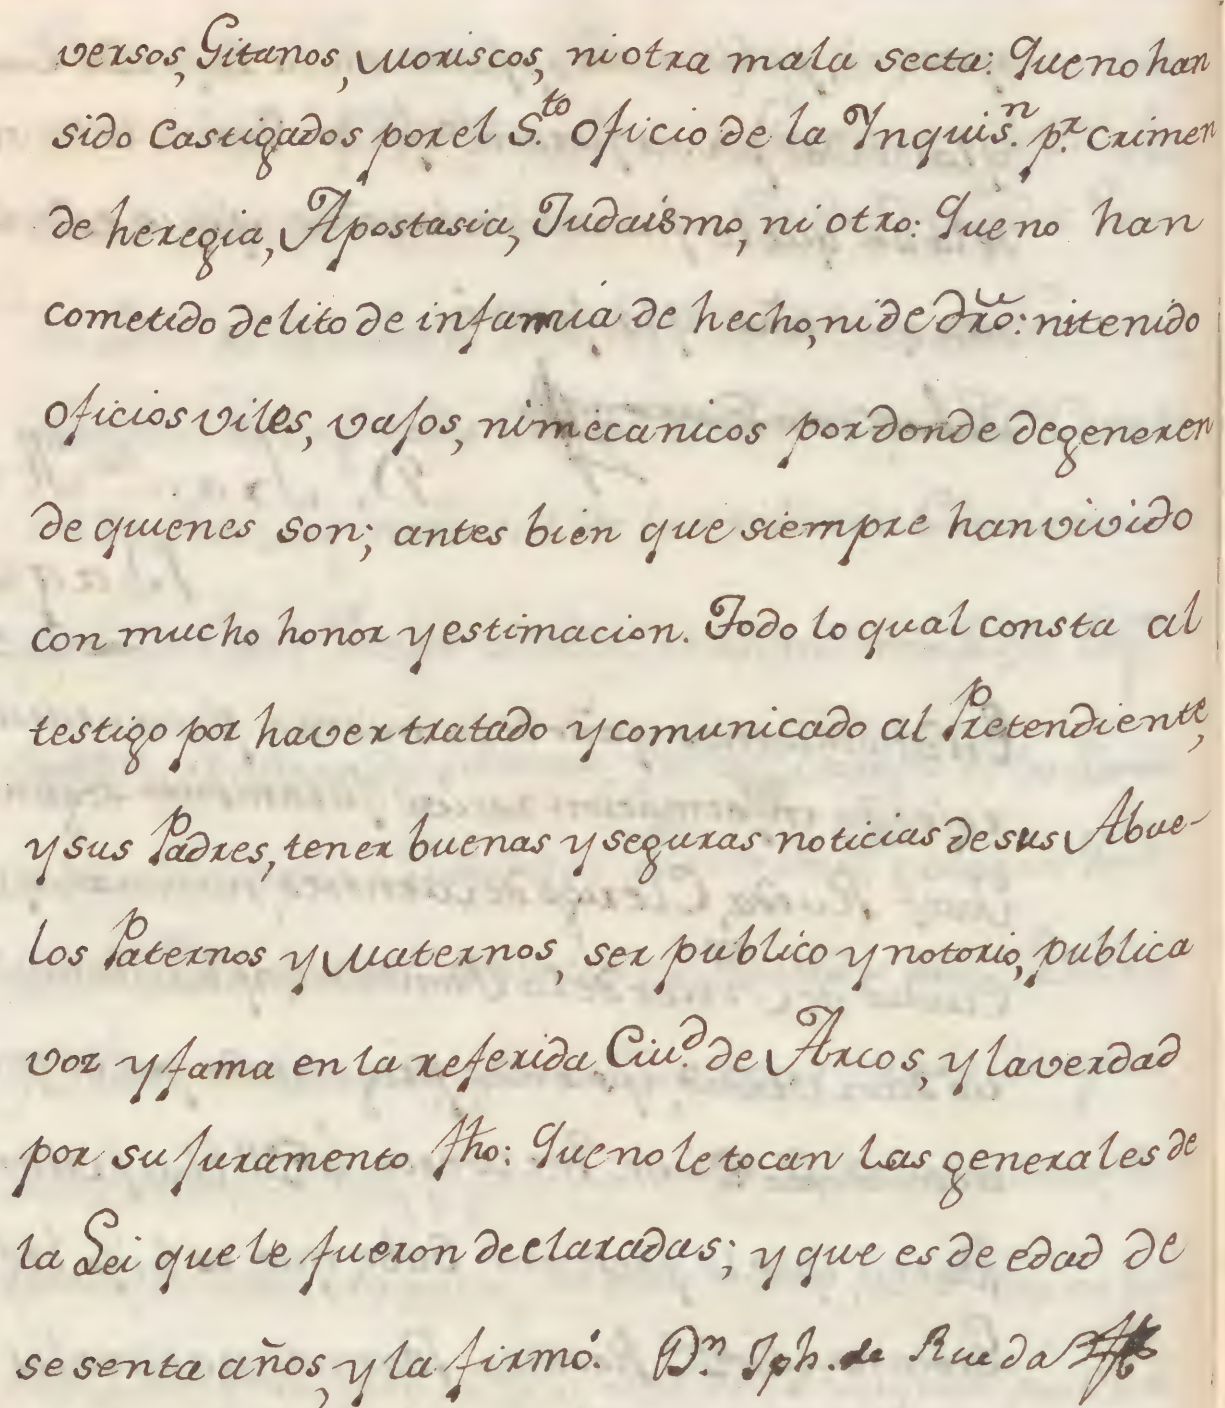 versos, Gitanos, Moriscos, ni otra mala secta: Que no han
sido Castigados por el S.to Oficio de la Ynquis.n p.r crimen
de heregia, Apostasia, Judaismo, ni otro: Que no han
cometido delito de infamia de hecho, ni de dro: ni tenido
oficios viles, vajos, ni mecanicos por donde degeneren
de quienes son; antes bien que siempre han vivido
con mucho honor y estimacion. Todo lo qual consta al
testigo por haver tratado y comunicado al Pretendiente,
y sus Padres, tener buenas y seguras noticias de sus Abue-
los Paternos y Maternos, ser publico y notorio, publica
voz y fama en la referida Ciu.d de Arcos, y la verdad
por su juramento fho: Que no le tocan las generales de
la Lei que le fueron declaradas; y que es de edad de
sesenta años, y la firmó. D.n Jph. de Rueda